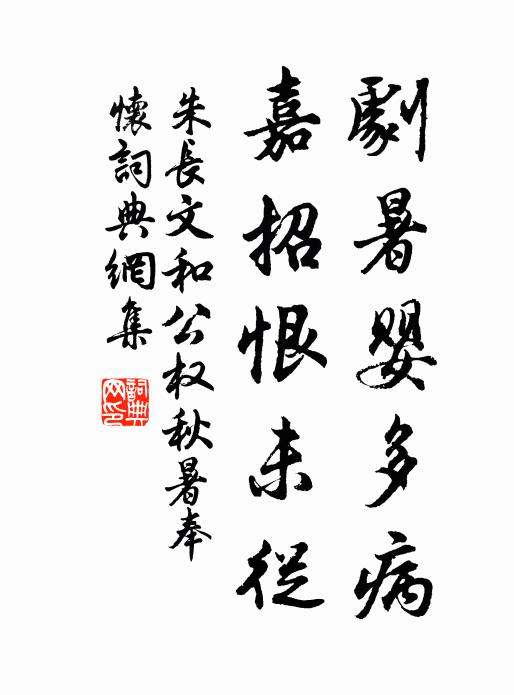 劇暑嬰多病
嘉招恨未從
朱長文和公权秋暑奉
懷詞典網集
詞典网印